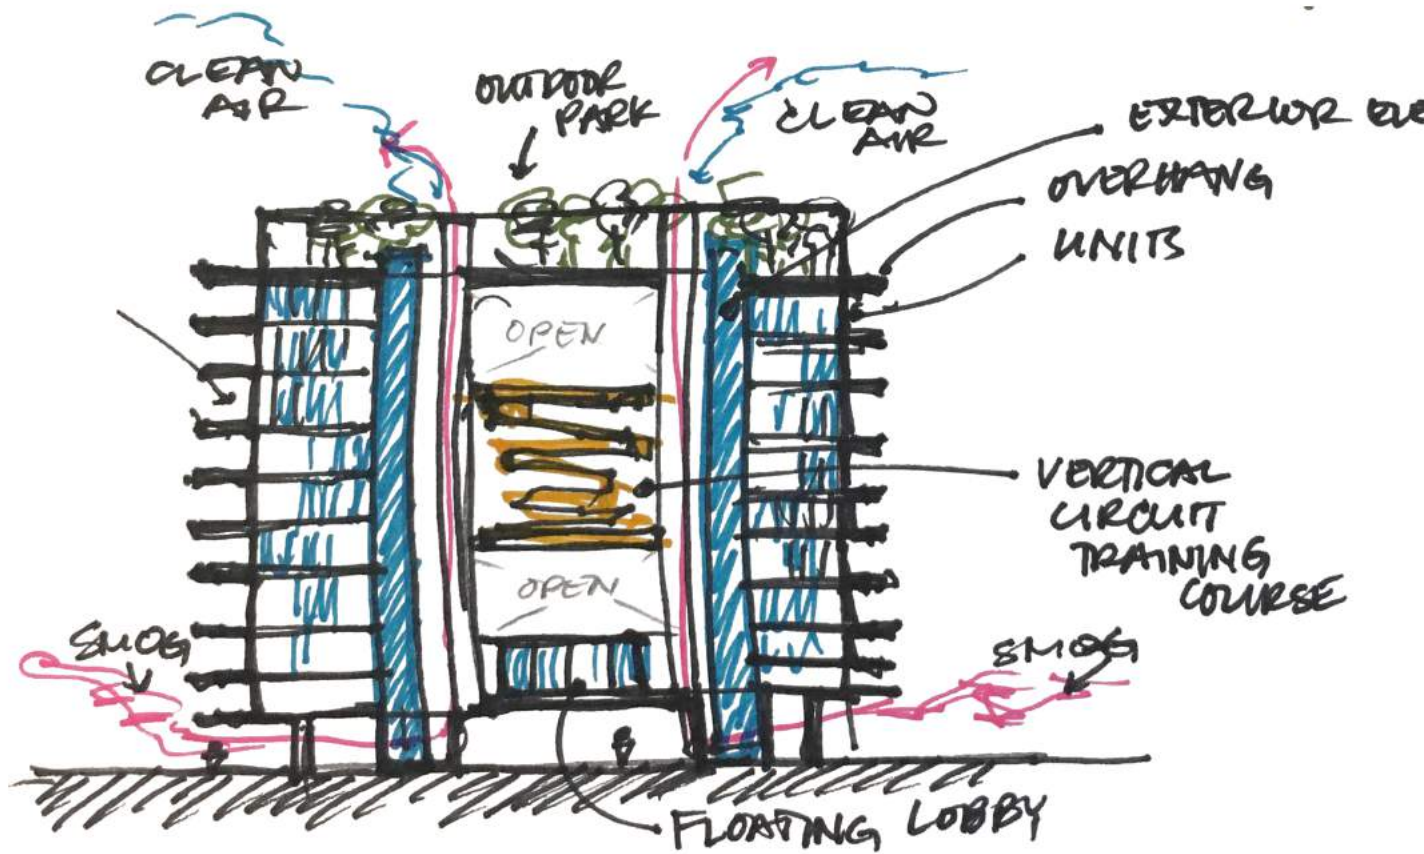 CLEAN
AIR
OUTDOOR
PARK
CLEAN
AIR
EXTERIOR ELE
OVERHANG
UNITS
OPEN
VERTICAL
CIRCUIT
TRAINING
COURSE
OPEN
SMOG
SMOG
FLOATING LOBBY